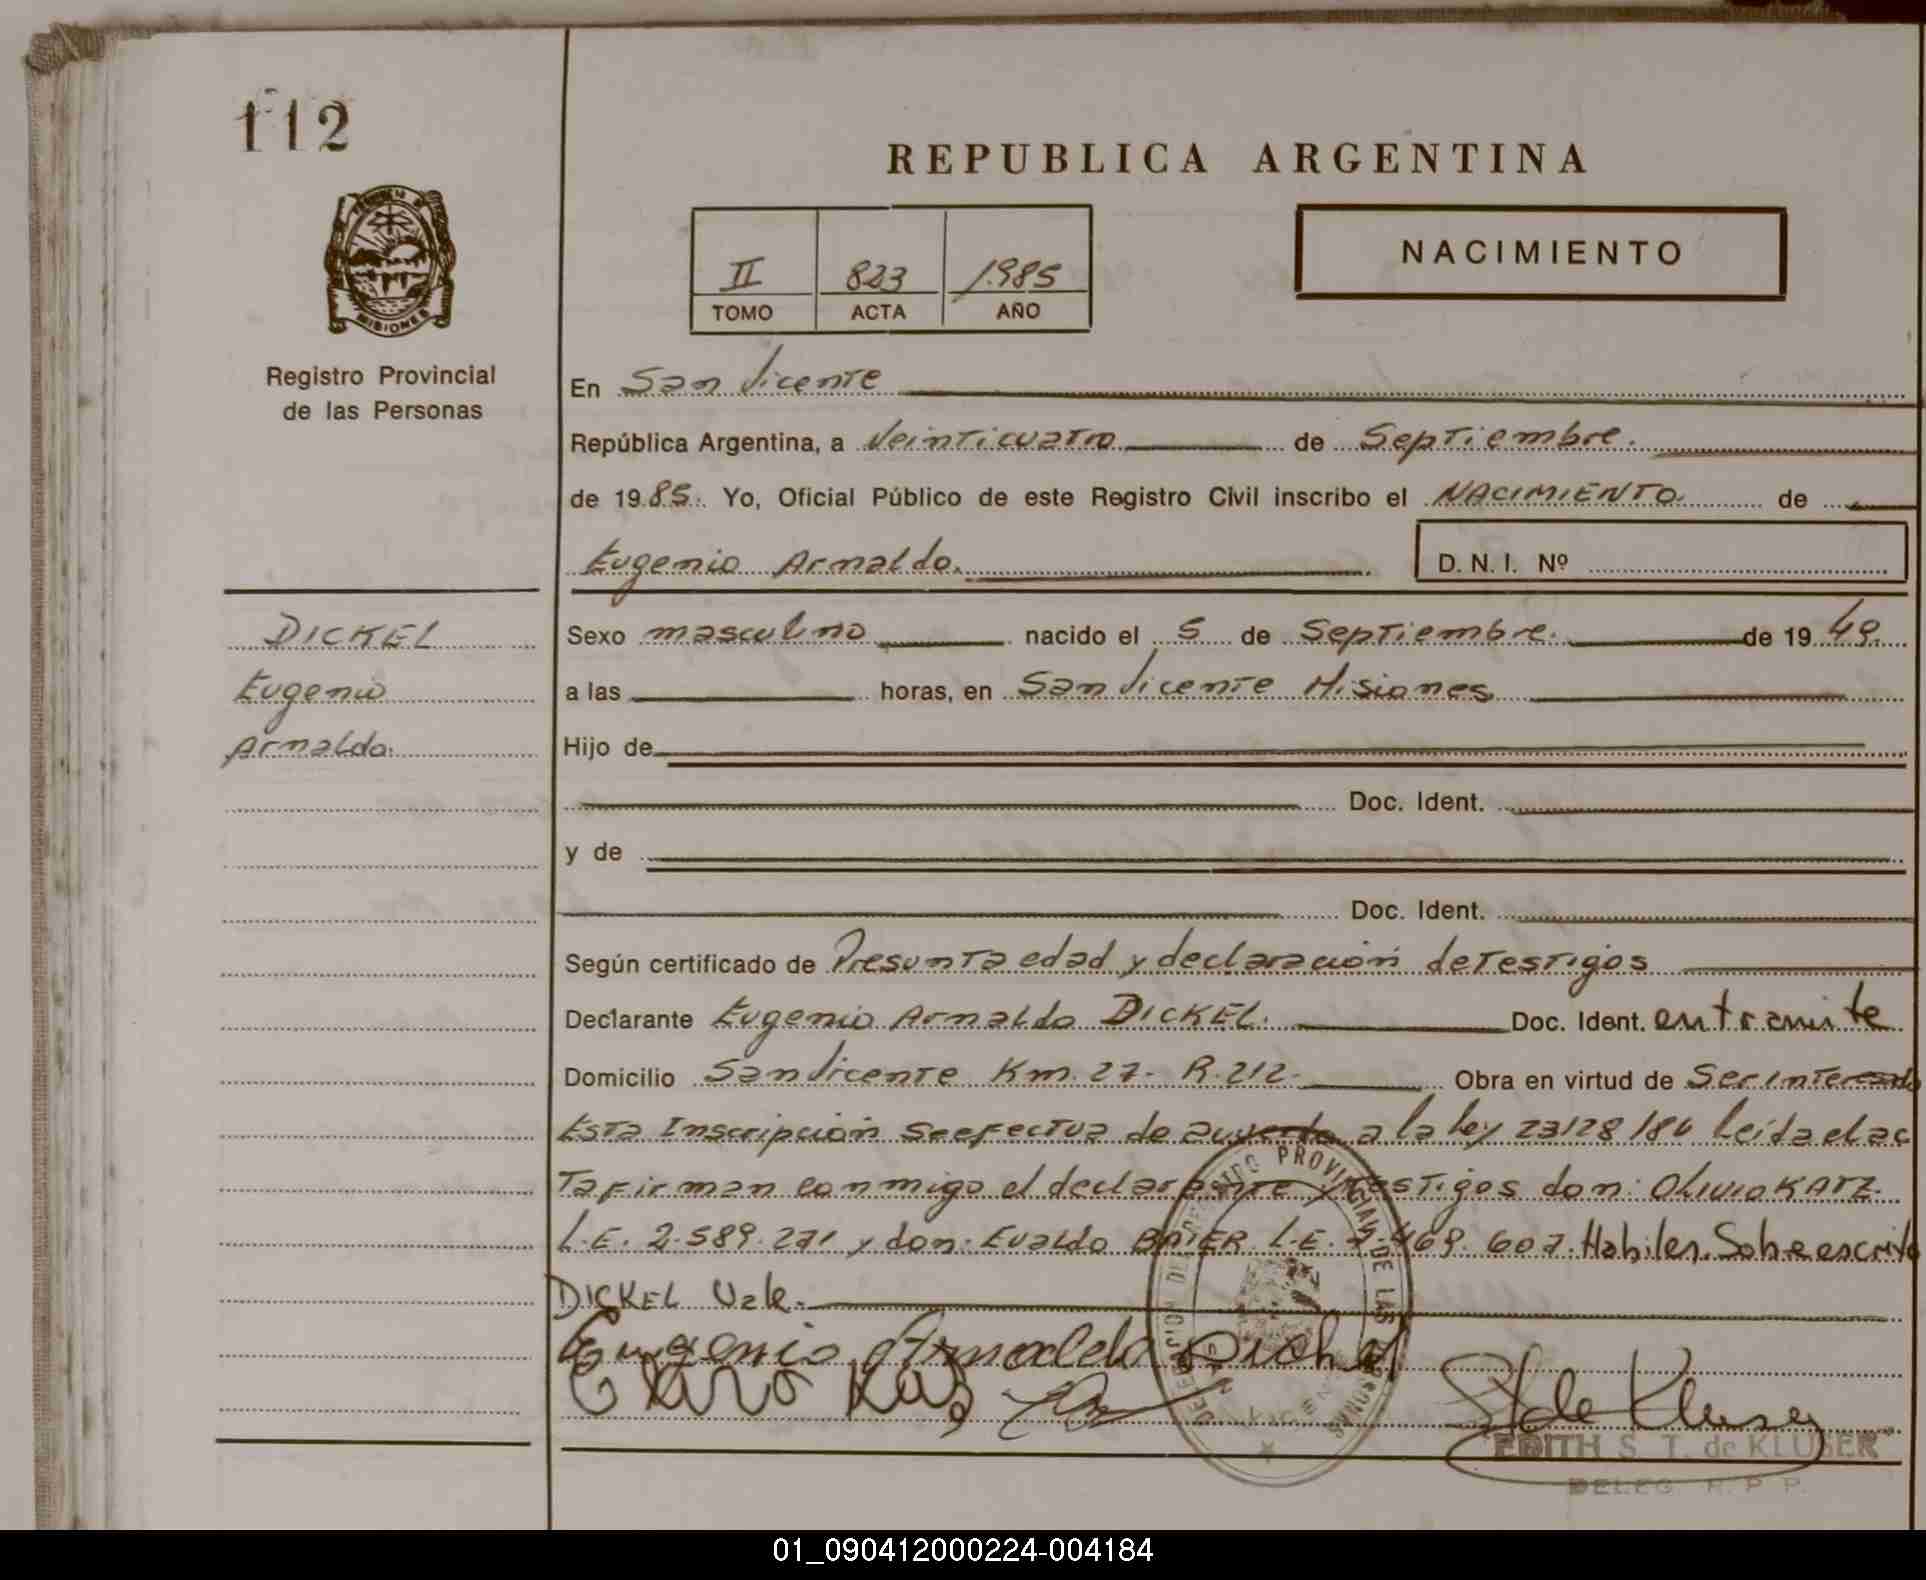 112
REPUBLICA ARGENTINA
NACIMIENTO
II 823 1.985
TOMO ACTA AÑO
MISIONES
Registro Provincial
de las Personas
En San Vicente
República Argentina, a Veinticuatro de Septiembre.
de 1985. Yo, Oficial Público de este Registro Civil inscribo el NACIMIENTO. de
Eugenio Arnaldo. D. N. I. Nº
DICKEL
Eugenio
Arnaldo.
Sexo masculino nacido el 5 de Septiembre. de 1949.
a las horas, en San Vicente Misiones
Hijo de
Doc. Ident.
y de
Doc. Ident.
Según certificado de Presunta edad y declaración de testigos
Declarante Eugenio Arnaldo DICKEL. Doc. Ident. en tramite
Domicilio San Vicente Km. 27- R. 212- Obra en virtud de Ser interesado
Esta Inscripción se efectua de acuerdo a la ley 23128/84 leída el ac
ta firman conmigo el declarante y testigos don: Olivio KATZ.
L.E. 2.589.271 y don: Evaldo BAIER L.E. 7.469.607. Habiles. Sobreescrito
DICKEL Vale.
Eugenio Arnaldo Dickel
REGISTRO PROVINCIAL DE LAS PERSONAS
EDITH S. T. de KLUSER
DELEG. R. P. P.
01_090412000224-004184